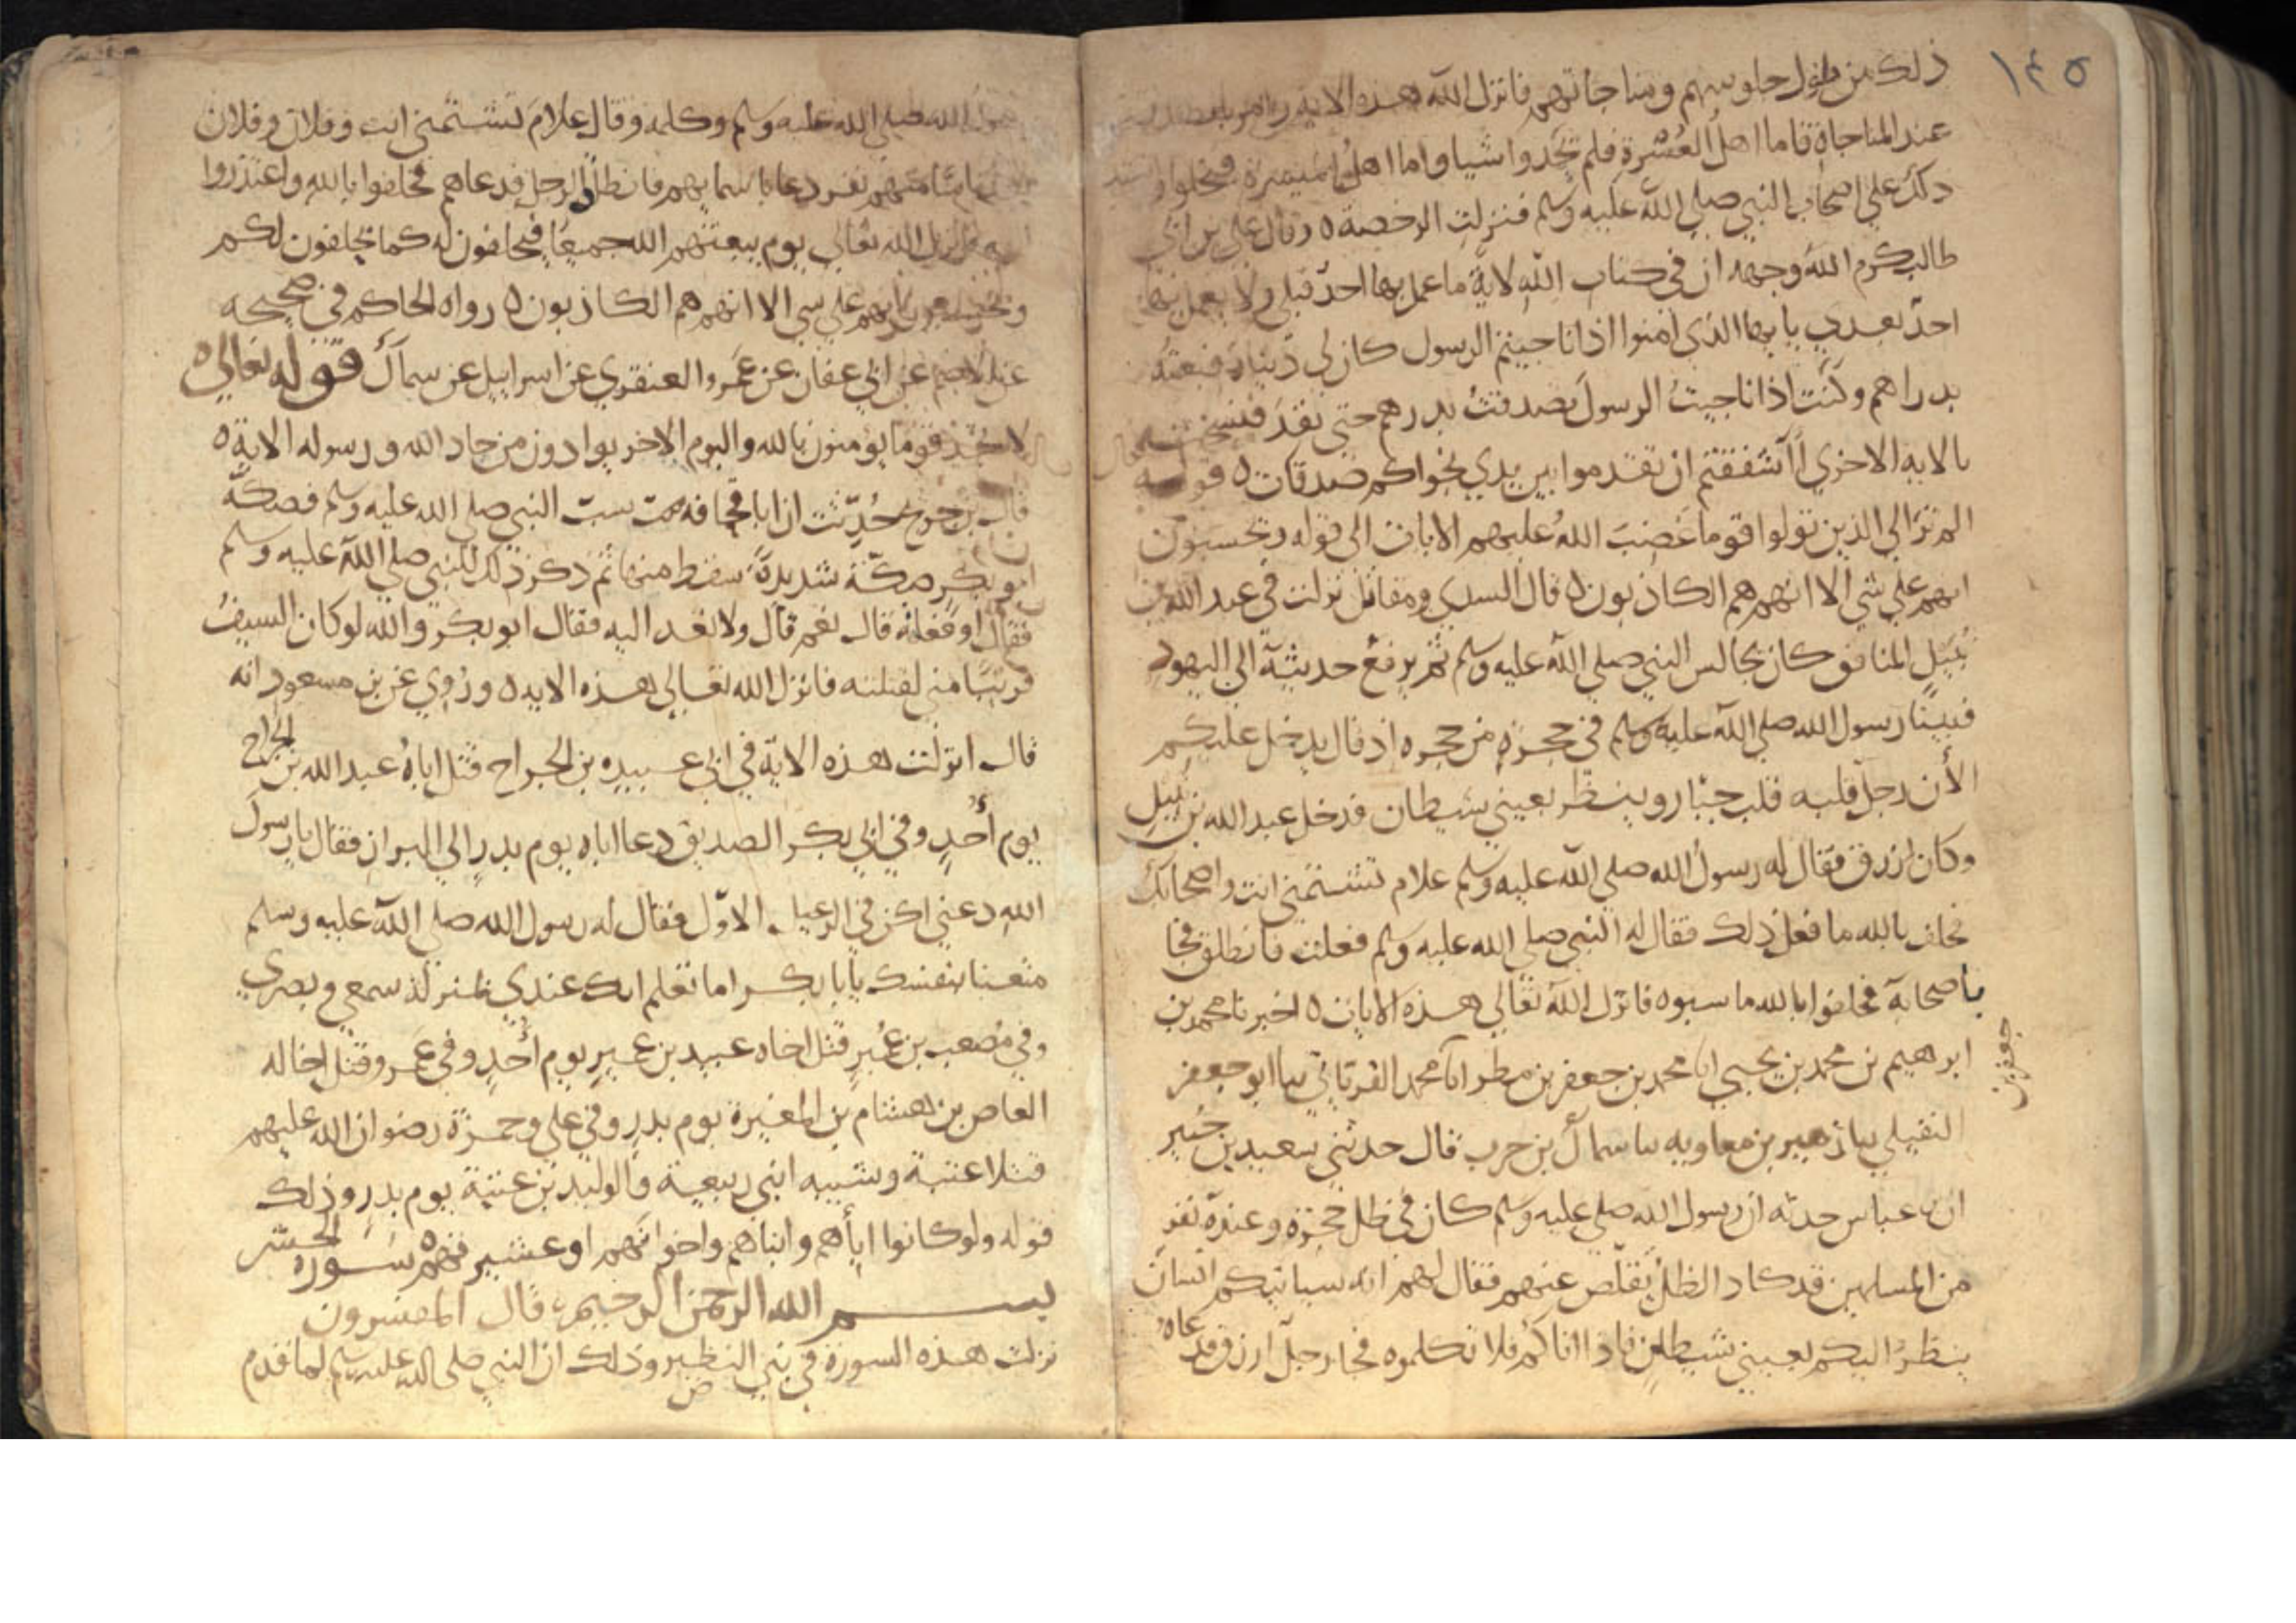 ١٤٥
ذلك من طول جلوسهم ومناجاتهم فانزل الله هذه الاية وامر بالصدقة
عند المناجاة فاما اهل العُسْرةِ فلم تجدوا شيا واما اهل الميسرة فبخلوا واشتد
ذلك على اصحاب النبي صلى الله عليه وسلم فنزلت الرخصة ٥ وقال علي بن ابي
طالب كرم الله وجهه ان في كتاب الله لايةً ما عمل بها احدٌ قبلي ولا يعمل بها
احدٌ بعدي يا يها الذى امنوا اذا ناجيتم الرسول كان لي دينارٌ فبعته
بدراهم وكنت اذا ناجيتُ الرسولَ تصدقتُ بدرهم حتى نفدَ فنسخت
بالايه الاخري أَاَشفقتم ان تقدموا بين يدي نجواكم صدقات ٥ قوله
الم تر الي الذين تولوا قوما غضبَ اللهُ عليهم الايات الى قوله وتحسبون
انهم علي شي الا انهم هم الكاذبون ٥ قال السدي ومقاتل نزلت في عبد الله بن
نُبَيْلٍ المنافق كان يجالس النبي صلى الله عليه وسلم ثم يرفع حديثه الى اليهود
فبينا رسول الله صلى الله عليه وسلم في حجرةٍ من حجره اذ قال يدخل عليكم
الأن رجلٌ قلبه قلب جبّار وينظر بعيني شيطان فدخل عبد الله بن نبيل
وكان ازرق فقال له رسول الله صلى الله عليه وسلم علام تشتمني انت واصحابك
فحلف بالله ما فعل ذلك فقال له النبي صلى الله عليه وسلم فعلت فانطلق فجا
باصحابه فحلفوا بالله ما سبوه فانزل الله تعالى هذه الايات ٥ اخبرنا محمد بن
جعفر بن
ابرهيم بن محمد بن يحيي انا محمد بن جعفر بن مطر انا محمد الفرياني سا ابو جعفر
النفيلي سا زهير بن معاويه سا سماك بن حرب قال حدثني سعيد بن جبير
ان بن عباس حدثه ان رسول الله صلى عليه وسلم كان في ظل حجرة وعنده نفر
من المسلمين قد كاد الظل يقلص عنهم فقال لهم انه سياتيكم انسان
ينظرُ اليكم بعيني شيطانٍ فاذا اتاكم فلا تكلموه فجا رجل ازرق فدعاه
رسول الله صلى الله عليه وسلم وكلمه وقال علامَ تشتمني انت وفلان وفلان
نفر دعا باسمايهم فانطلق الرجل فدعاهم فحلفوا بالله واعتذروا
اليه فانزل الله تعالى يوم يبعثهم الله جميعًا فيحلفون له كما يحلفون لكم
ويحسبون انهم علي شي الا انهم هم الكاذبون ٥ رواه الحاكم في صحيحه
عن الاصم عن ابي عفان عن عَمرو العنقزي عن اسراييل عن سماك قوله تعالى ٥
لا تجد قوما يؤمنون بالله واليوم الاخر يوادون من حاد الله ورسوله الاية ٥
قال بن جريج حُدِّثت ان ابا قحافه سب النبي صلى الله عليه وسلم فصكّه
ابو بكر صكّة شديدةً سقط منها ثم ذكر ذلك للنبي صلى الله عليه وسلم
فقال اوفعلته قال نعم قال ولا تعد اليه فقال ابو بكر والله لو كان السيفُ
قريبًا مني لقتلته فانزل الله تعالى هذه الايه ٥ وروي عن بن مسعود انه
قال انزلت هذه الاية في ابي عبيده بن الجراح قتل اباهُ عبد الله بن الجراح
يوم أُحُدٍ وفي ابي بكر الصديق دعا اباه يوم بدرٍ الي البراز فقال يا رسول
الله دعني اكن في الرعيل الاوّل فقال له رسول الله صلى الله عليه وسلم
متعنا بنفسك يا ابا بكر اما تعلم انك عندي بمنزلة سمعي وبصري
وفي مُصعب بن عُميرٍ قتل اخاه عبيد بن عميرٍ يوم أُحُدٍ وفي عمر وقتل اخا له
العاص بن هشام بن المغيرة يوم بدرٍ وفي علي وحمزة رضوان الله عليهم
قتلا عتبة وشيبه ابني ربيعة والوليد بن عتبة يوم بدرٍ وذلك
قوله ولو كانوا اباهم وابناهم واخوانهم او عشيرتهم ٥ سورة الحشر
بسم الله الرحمن الرحيم قال المفسرون
نزلت هذه السورة في بني النظير وذلك ان النبي صلى الله عليه وسلم لما قدم
ض